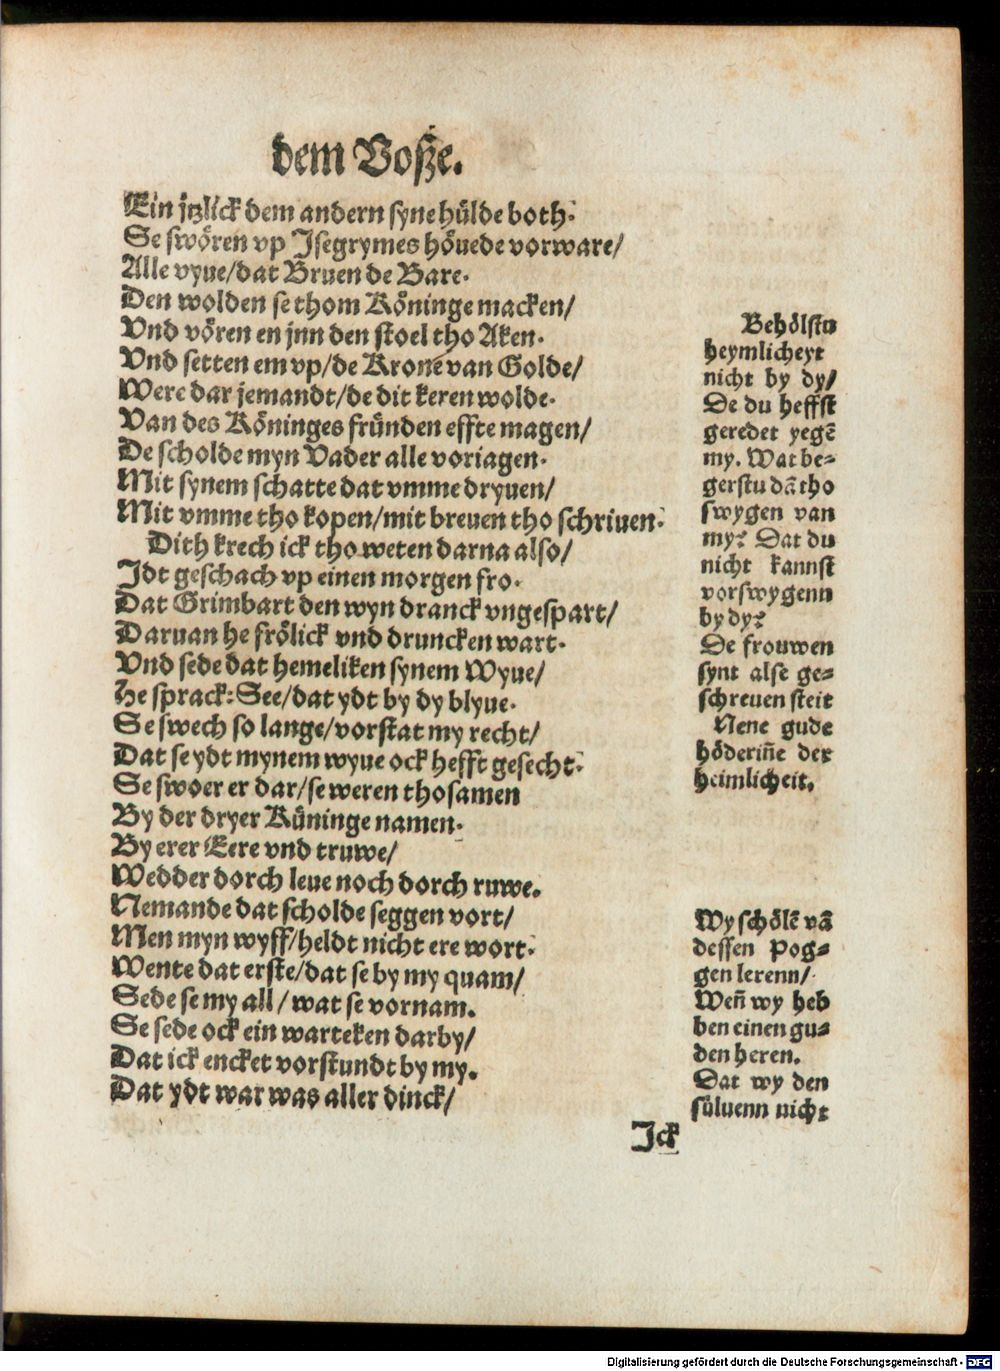 dem Voſʒe.
Ein jtzlick dem andern ſyne hülde both.
Se ſwören vp Iſegrymes höuede vorware/
Alle vyue/dat Bruen de Bare.
Den wolden ſe thom Köninge macken/
Vnd vören en jnn den ſtoel tho Aken.
Vnd ſetten em vp/de Krone van Golde/
Were dar jemandt/de dit keren wolde.
Van des Köninges fründen effte magen/
De ſcholde myn Vader alle voriagen.
Mit ſynem ſchatte dat vmme dryuen/
Mit vmme tho kopen/mit breuen tho ſchriuen.
Dith krech ick tho weten darna alſo/
Idt geſchach vp einen morgen fro.
Dat Grimbart den wyn dranck vngeſpart/
Daruan he frölick vnd druncken wart.
Vnd ſede dat hemeliken ſynem Wyue/
He ſprack: See/dat ydt by dy blyue.
Se ſwech ſo lange/vorſtat my recht/
Dat ſe ydt mynem wyue ock hefft geſecht.
Se ſwoer er dar/ſe weren thoſamen
By der dryer Küninge namen.
By erer Eere vnd truwe/
Wedder dorch leue noch dorch ruwe.
Nemande dat ſcholde ſeggen vort/
Men myn wyff/heldt nicht ere wort.
Wente dat erſte/dat ſe by my quam/
Sede ſe my all/wat ſe vornam.
Se ſede ock ein warteken darby/
Dat ick encket vorſtundt by my.
Dat ydt war was aller dinck/
Behölſtu
heymlicheyt
nicht by dy/
De du heffſt
geredet yegē
my. Wat be⸗
gerſtu dā tho
ſwygen van
my? Dat du
nicht kannſt
vorſwygenn
by dy?
De frouwen
ſynt alſe ge⸗
ſchreuen ſteit
Nene gude
höderiñe der
heimlicheit.
Wy ſchölē vā
deſſen Pog⸗
gen lerenn/
Weñ wy heb
ben einen gu⸗
den heren.
Dat wy den
ſüluenn nicht
Ick
Digitalisierung gefördert durch die Deutsche Forschungsgemeinschaft - DFG